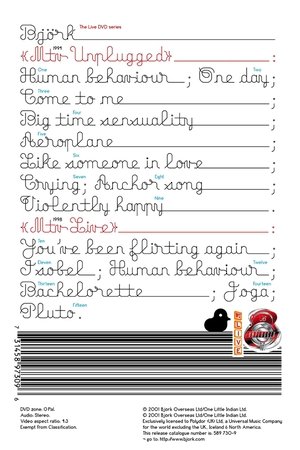 Björk The Live DVD series
{{Mtv Unplugged}} 1994 :
One Two
Human behaviour ; One day ;
Three
Come to me ;
Four
Big time sensuality ;
Five
Aeroplane ;
Six
Like someone in love ;
Seven Eight
Crying ; Anchor song ;
Nine
Violently happy
{{Mtv Live}} 1998 :
Ten
You've been flirting again ;
Eleven Twelve
Isobel ; Human behaviour ;
Thirteen Fourteen
Bachelorette ; Joga ;
Fifteen
Pluto .
7 31458 97309 6
DVD zone: 0 Pal.
Audio: Stereo.
Video aspect ratio: 4:3
Exempt from Classification.
© 2001 Bjork Overseas Ltd/One Little Indian Ltd.
℗ 2001 Bjork Overseas Ltd/One Little Indian Ltd.
Exclusively licensed to Polydor (UK) Ltd, a Universal Music Company
for the world excluding the UK, Iceland & North America.
This release catalogue number is: 589 730-9
~ go to: http://www.bjork.com